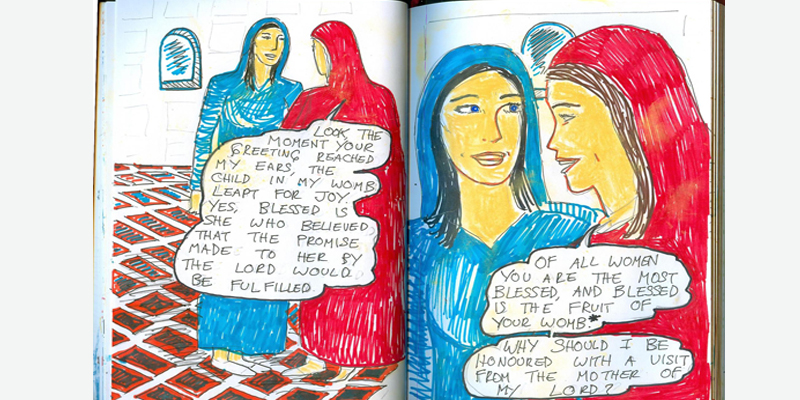 LOOK THE
MOMENT YOUR
GREETING REACHED
MY EARS, THE
CHILD IN MY WOMB
LEAPT FOR JOY.
YES, BLESSED IS
SHE WHO BELIEVED
THAT THE PROMISE
MADE TO HER BY
THE LORD WOULD
BE FULFILLED.
OF ALL WOMEN
YOU ARE THE MOST
BLESSED, AND BLESSED
IS THE FRUIT OF
YOUR WOMB.*
WHY SHOULD I BE
HONOURED WITH A VISIT
FROM THE MOTHER OF
MY LORD?